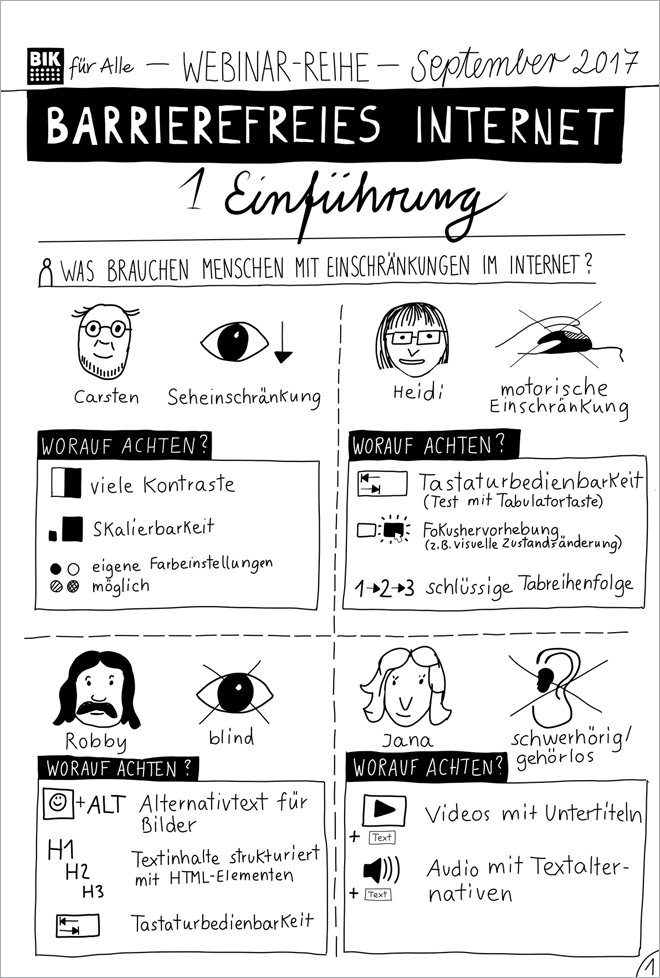 BIK für Alle – WEBINAR-REIHE – September 2017
BARRIEREFREIES INTERNET
1 Einführung
WAS BRAUCHEN MENSCHEN MIT EINSCHRÄNKUNGEN IM INTERNET?
Carsten
Seheinschränkung
WORAUF ACHTEN?
viele Kontraste
Skalierbarkeit
eigene Farbeinstellungen
möglich
Heidi
motorische
Einschränkung
WORAUF ACHTEN?
Tastaturbedienbarkeit
(Test mit Tabulatortaste)
Fokushervorhebung
(z.B. visuelle Zustandsänderung)
1→2→3 schlüssige Tabreihenfolge
Robby
blind
WORAUF ACHTEN?
+ALT Alternativtext für
Bilder
H1
H2
H3
Textinhalte strukturiert
mit HTML-Elementen
Tastaturbedienbarkeit
Jana
schwerhörig/
gehörlos
WORAUF ACHTEN?
Videos mit Untertiteln
+ Text
Audio mit Textalter-
nativen
+ Text
1